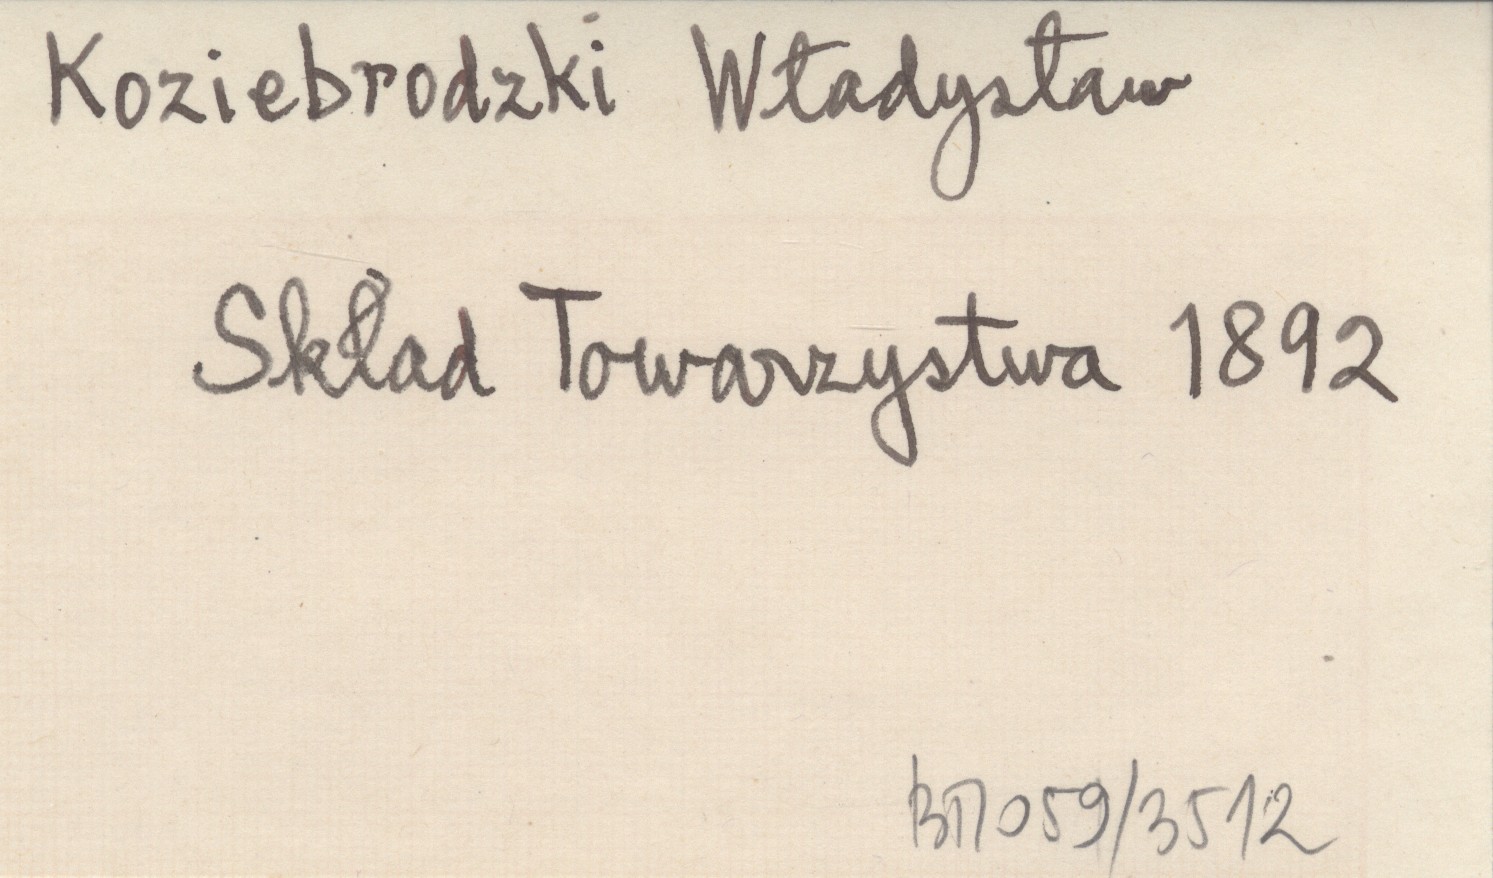 Koziebrodzki Władysław
Skład Towarzystwa 1892
ВП059/3512